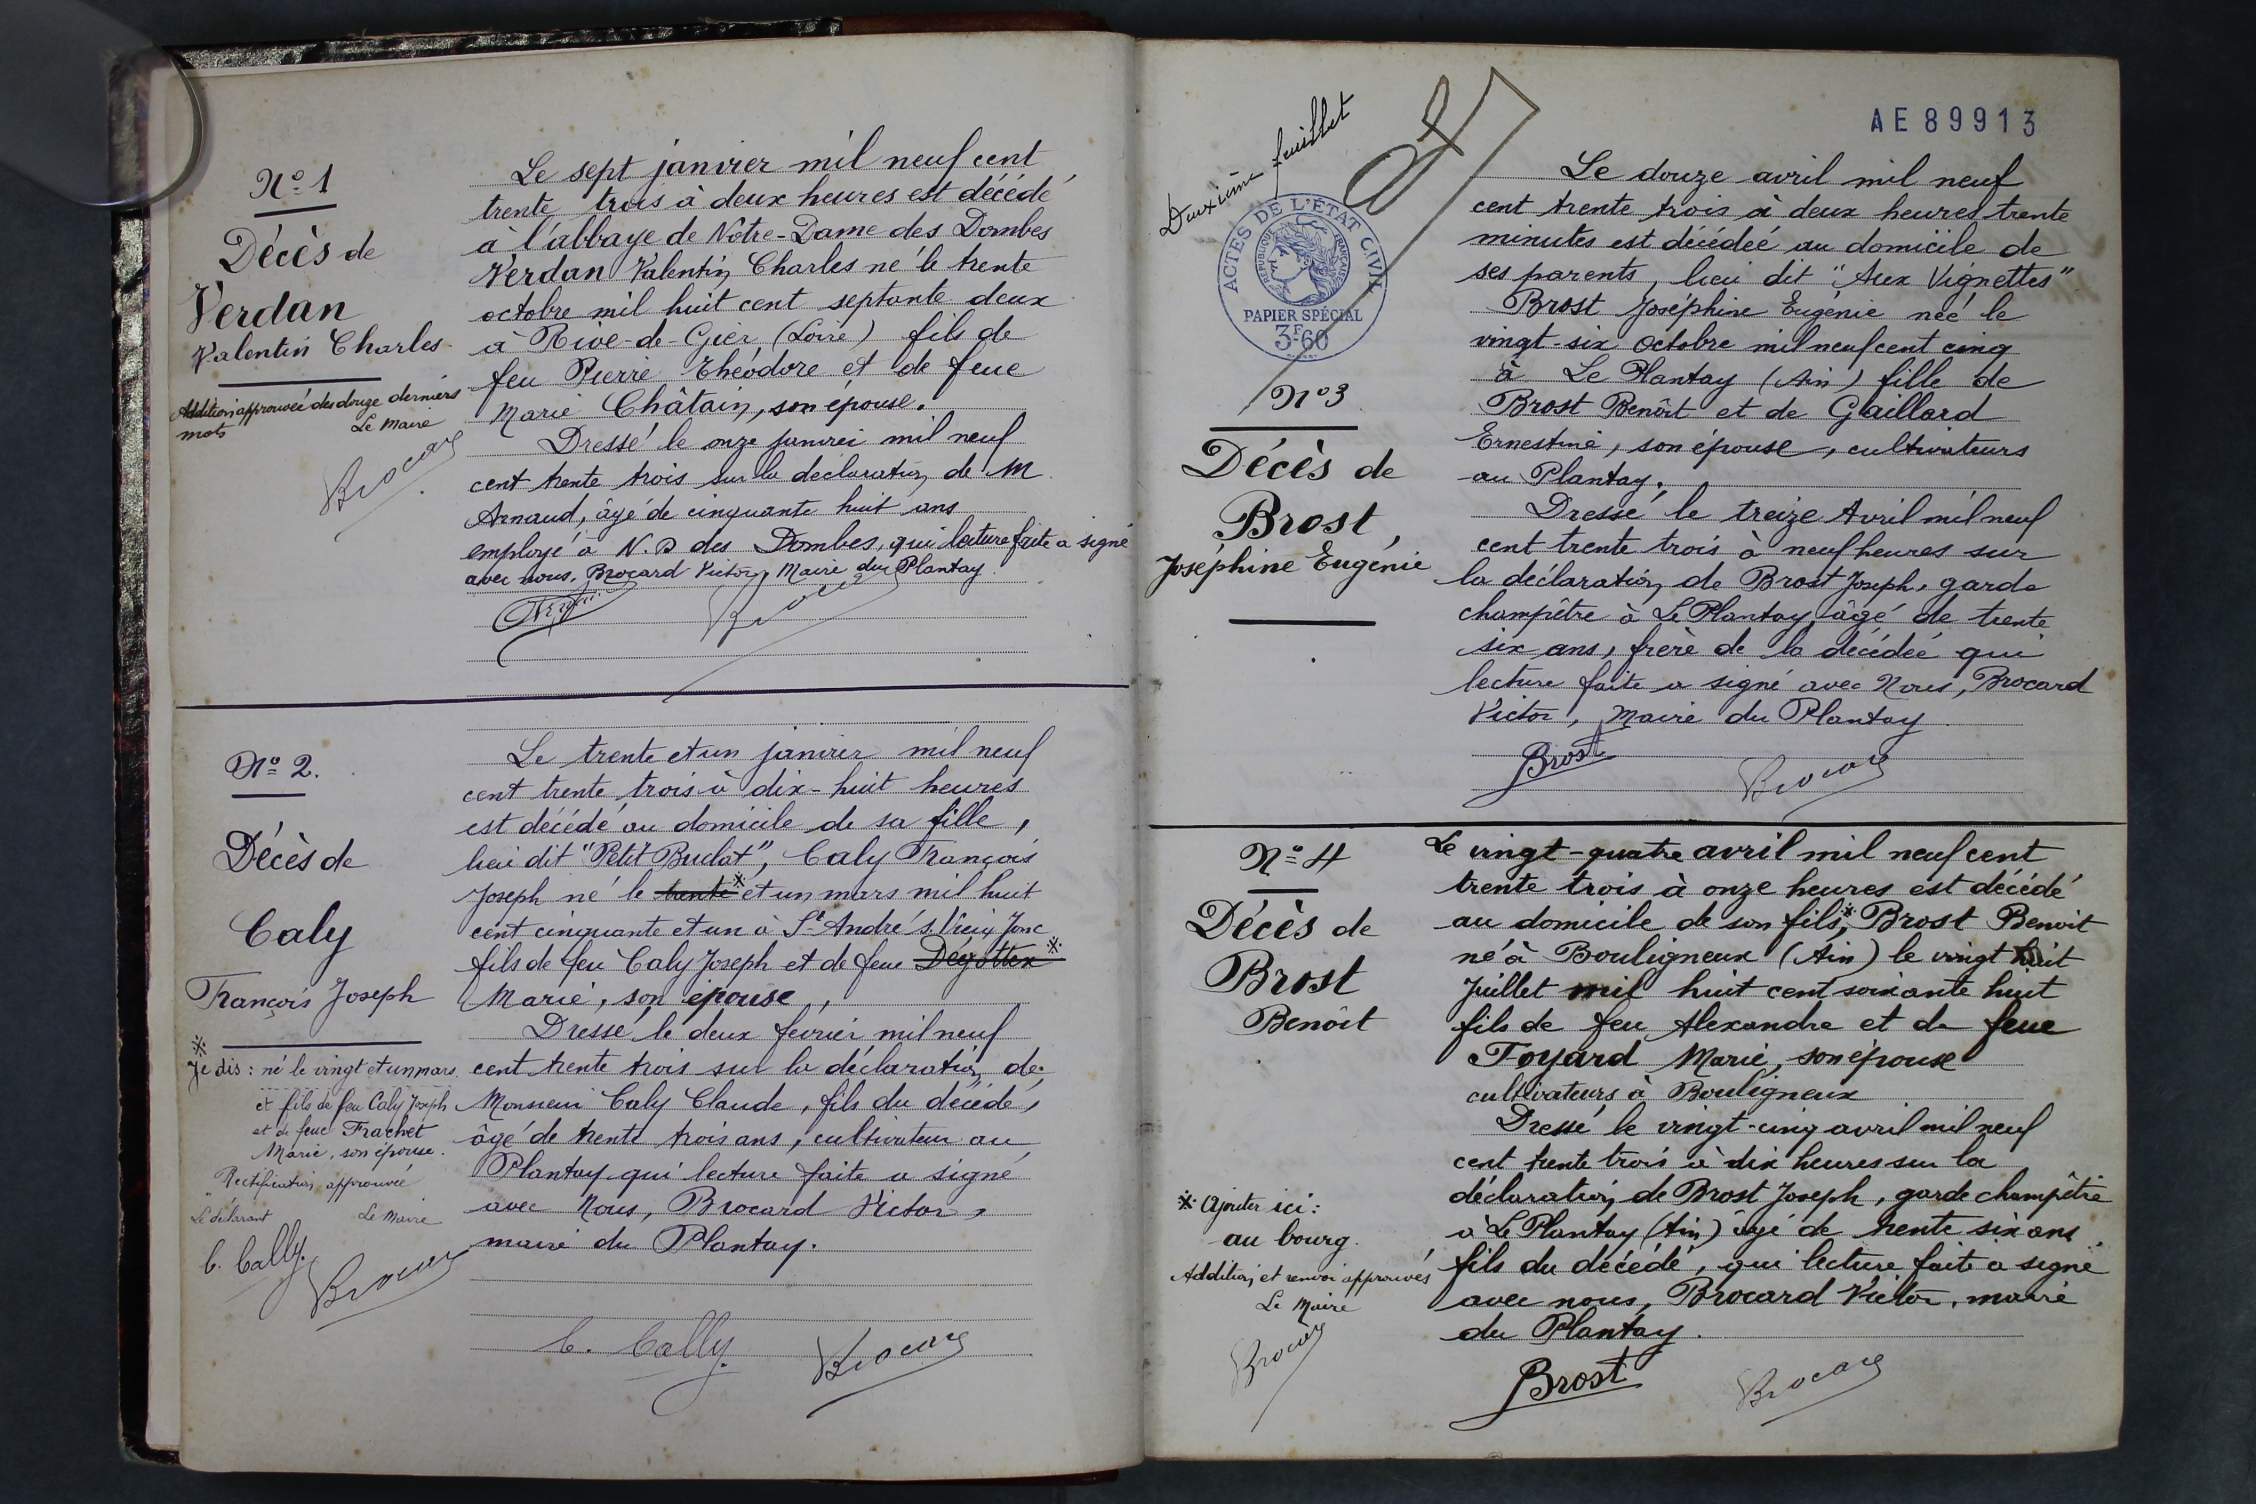 Nº 1
Décès de
Verdan
Valentin Charles
Addition approuvée des douze derniers
mots
Le Maire
Brocard
Le sept janvier mil neuf cent
trente trois à deux heures est décédé
à l'abbaye de Notre-Dame des Dombes
Verdan Valentin Charles né le trente
octobre mil huit cent septante deux
à Rive-de-Gier (Loire) fils de
feu Pierre Théodore et de feue
Marie Châtain, son épouse.
Dressé le onze janvier mil neuf
cent trente trois sur la déclaration de M
Arnaud, âgé de cinquante huit ans
employé à N.D des Dombes, qui lecture faite a signé
avec nous, Brocard Victor, Maire du Plantay.
Brocard
Nº 2.
Décès de
Caly
François Joseph
※
Je dis : né le vingt et un mars
et fils de feu Caly Joseph
et de feue Frachet
Marie, son épouse.
Rectification approuvée
Le déclarant Le Maire
C. Cally. Brocard
Le trente et un janvier mil neuf
cent trente trois à dix-huit heures
est décédé au domicile de sa fille,
lieu dit "Petit Buclat", Caly François
Joseph né le trente※ et un mars mil huit
cent cinquante et un à St André s. Vieix Jonc
fils de feu Caly Joseph et de feue Dégottex※
Marie, son épouse,
Dressé le deux février mil neuf
cent trente trois sur la déclaration de
Monsieur Caly Claude, fils du décédé,
âgé de trente trois ans, cultivateur au
Plantay qui lecture faite a signé
avec Nous, Brocard Victor,
maire du Plantay.
C. Cally. Brocard
Deuxième feuillet
ACTES DE L'ÉTAT CIVIL
RÉPUBLIQUE FRANÇAISE
PAPIER SPÉCIAL
3F60
AE 89913
Nº 3
Décès de
Brost,
Joséphine Eugénie
Le douze avril mil neuf
cent trente trois à deux heures trente
minutes est décédée au domicile de
ses parents, lieu dit "Aux Vignettes"
Brost Joséphine Eugénie née le
vingt-six octobre mil neuf cent cinq
à Le Plantay (Ain) fille de
Brost Benoît et de Gaillard
Ernestine, son épouse, cultivateurs
au Plantay.
Dressé le treize Avril mil neuf
cent trente trois à neuf heures sur
la déclaration de Brost Joseph, garde
champêtre à Le Plantay âgé de trente
six ans, frère de la décédée qui
lecture faite a signé avec Nous, Brocard
Victor, Maire du Plantay.
Brost Brocard
Nº 4
Décès de
Brost
Benoît
※ Ajouter ici :
au bourg.
Addition et renvoi approuvés
Le Maire
Brocard
Le vingt-quatre avril mil neuf cent
trente trois à onze heures est décédé
au domicile de son fils,※ Brost Benoit
né à Bouligneux (Ain) le vingt huit
Juillet mil huit cent soixante huit
fils de feu Alexandre et de feue
Foyard Marie, son épouse
cultivateurs à Bouligneux
Dressé le vingt-cinq avril mil neuf
cent trente trois à dix heures sur la
déclaration de Brost Joseph, garde champêtre
à Le Plantay (Ain) âgé de trente six ans,
fils du décédé, qui lecture faite a signé
avec nous, Brocard Victor, maire
du Plantay.
Brost Brocard